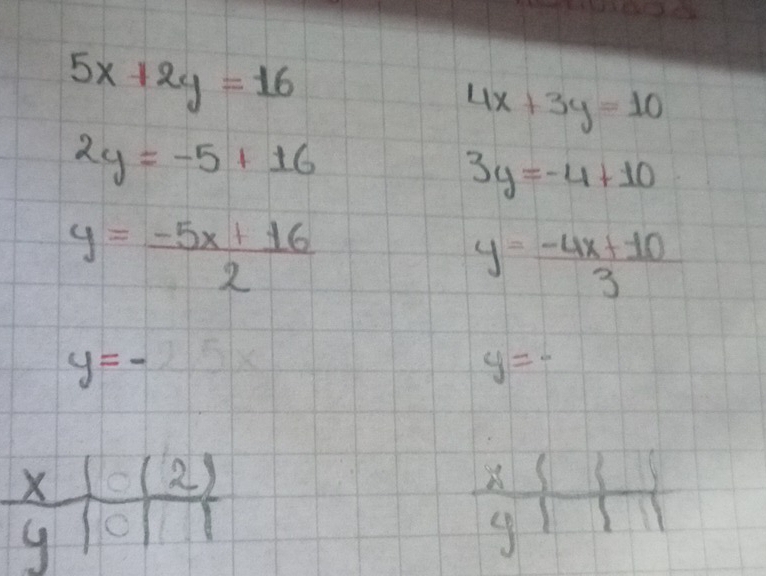 5x + 2y = 16
2y = -5 + 16
y = -5x + 16
2
y = - 2,5x
x 0 2
y 0
4x + 3y = 10
3y = -4 + 10
y = -4x + 10
3
y = -
x
y